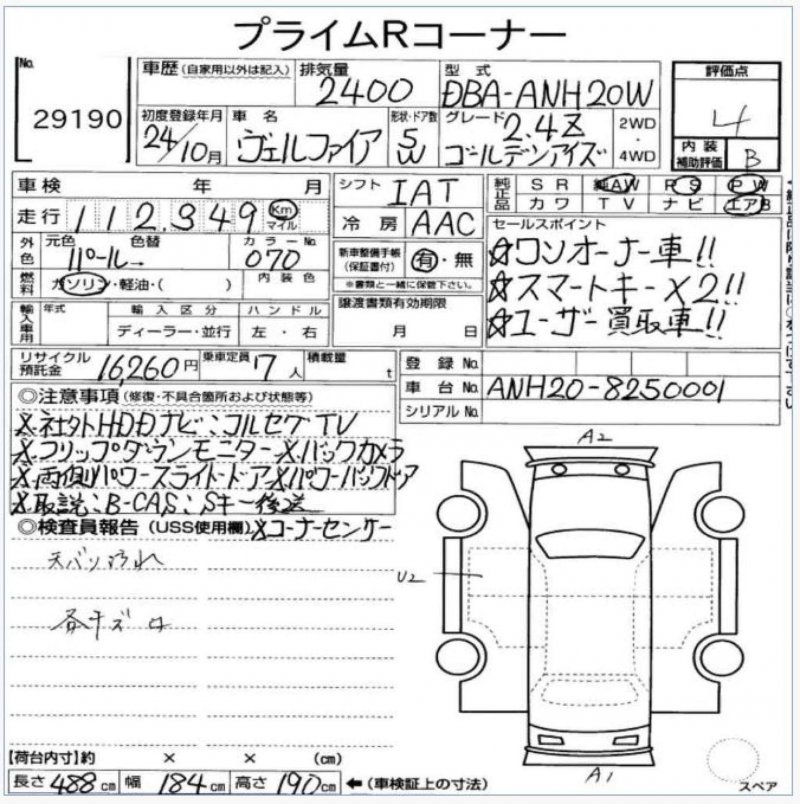 プライムRコーナー
No. 29190
車歴 (自家用以外は記入)
排気量 2400
型式 DBA-ANH20W
評価点 4
初度登録年月 24/10月
車名 ヴェルファイア
形状・ドア数 5W
グレード 2.4Z ゴールデンアイズ
2WD・4WD
内装補助評価 B
車検 年 月
シフト IAT
純正品 SR 純AW PS PW
カワ TV ナビ エアB
走行 112,949 Km マイル
冷房 AAC
セールスポイント
☆ワンオーナー車!!
☆スマートキー×2!!
☆ユーザー買取車!!
外色 元色 パール 色替 → カラーNo. 070
新車整備手帳(保証書付) 有・無
※書類と一緒に保管下さい。
燃料 ガソリン・軽油・( ) 内装色
譲渡書類有効期限
月 日
輸入車用 年式 輸入区分 ハンドル
ディーラー・並行 左・右
リサイクル預託金 16,260円 乗車定員 7人 積載量 t
登録No.
車台No. ANH20-8250001
シリアルNo.
◎注意事項(修復・不具合箇所および状態等)
※社外HDDナビ:フルセグTV
※フリップダウンモニター※バックカメラ
※両側パワースライドドア※パワーバックドア
※取説:B-CAS:Sキー後送
◎検査員報告(USS使用欄)※コーナーセンサー
天バリ汚れ
各キズ
A2
U2
A1
【荷台内寸】約 × × (cm)
長さ 488cm 幅 184cm 高さ 190cm ←(車検証上の寸法)
スペア